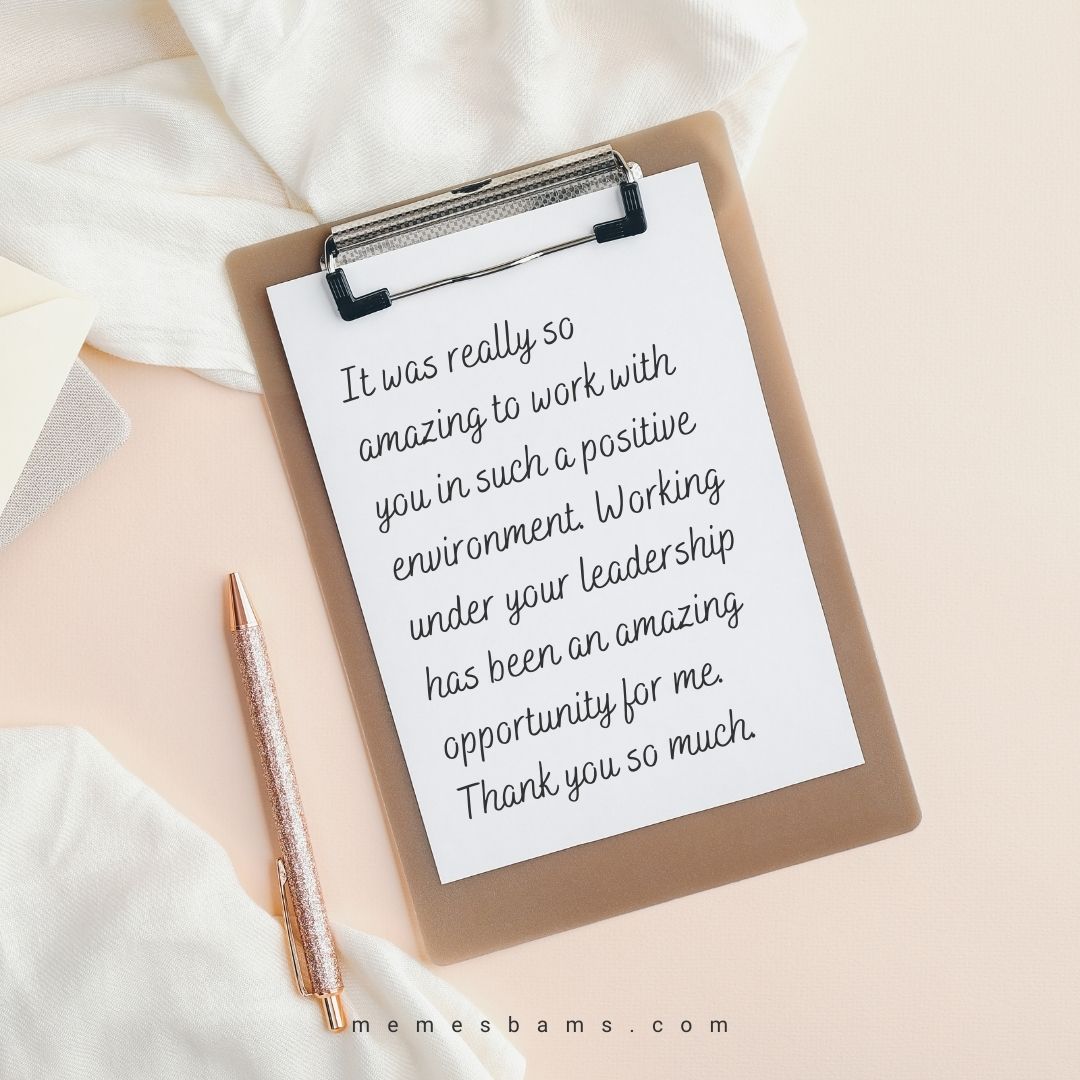 It was really so
amazing to work with
you in such a positive
environment. Working
under your leadership
has been an amazing
opportunity for me.
Thank you so much.
memesbams.com